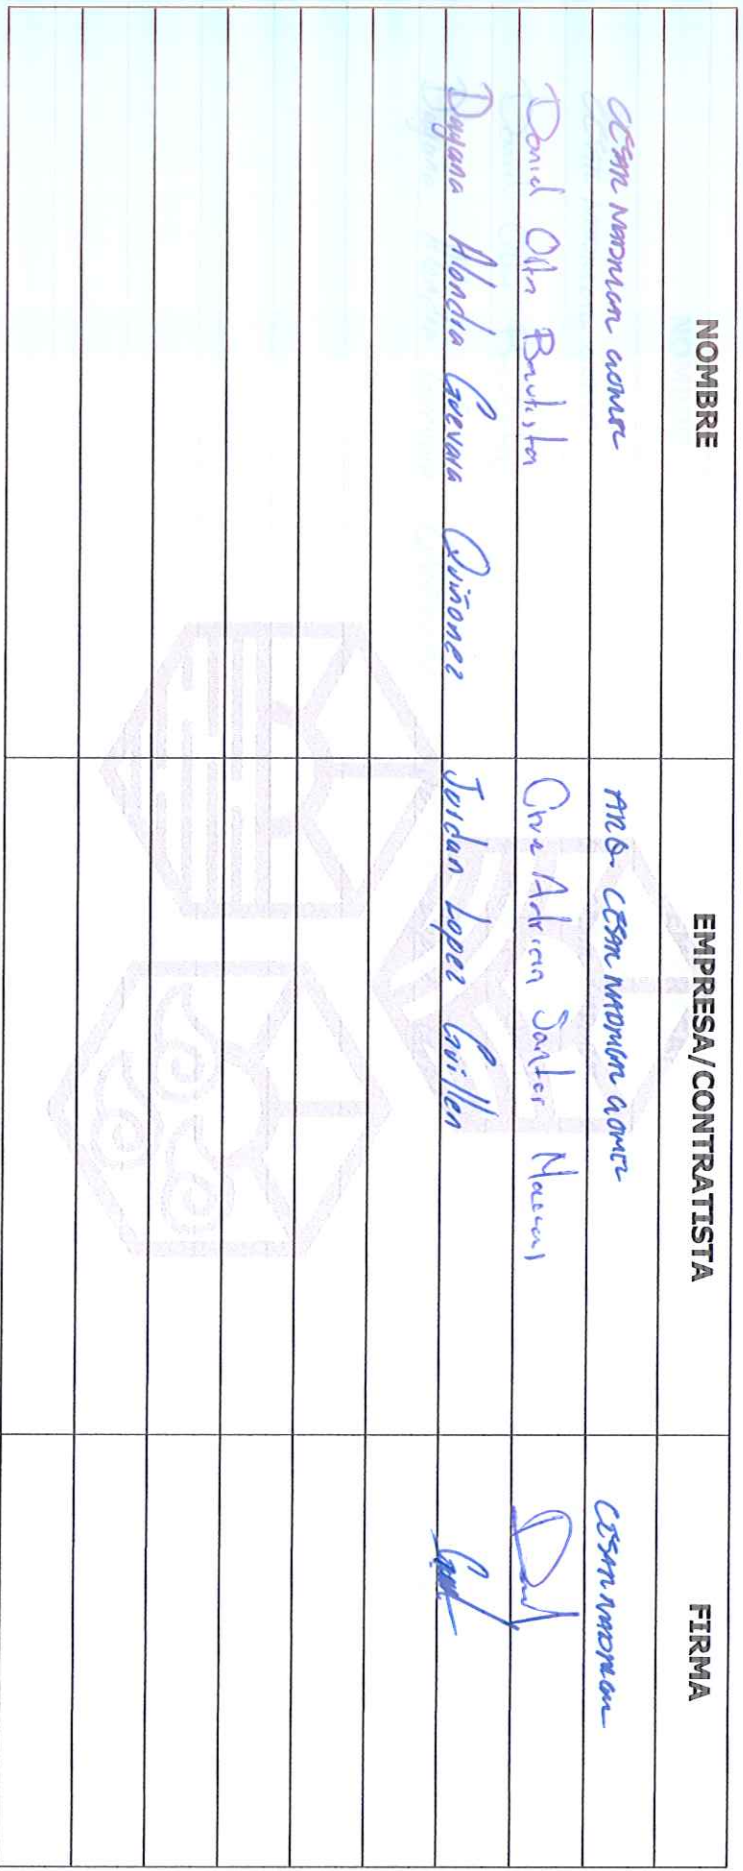 NOMBRE EMPRESA/CONTRATISTA FIRMA
CESAR MADRIGAL GOMEZ ARQ. CESAR MADRIGAL GOMEZ CESAR MADRIGAL
Daniel Bautista Adrian Santos
Dayana Alondra Guevara Quiñonez Jordan Lopez Guillen